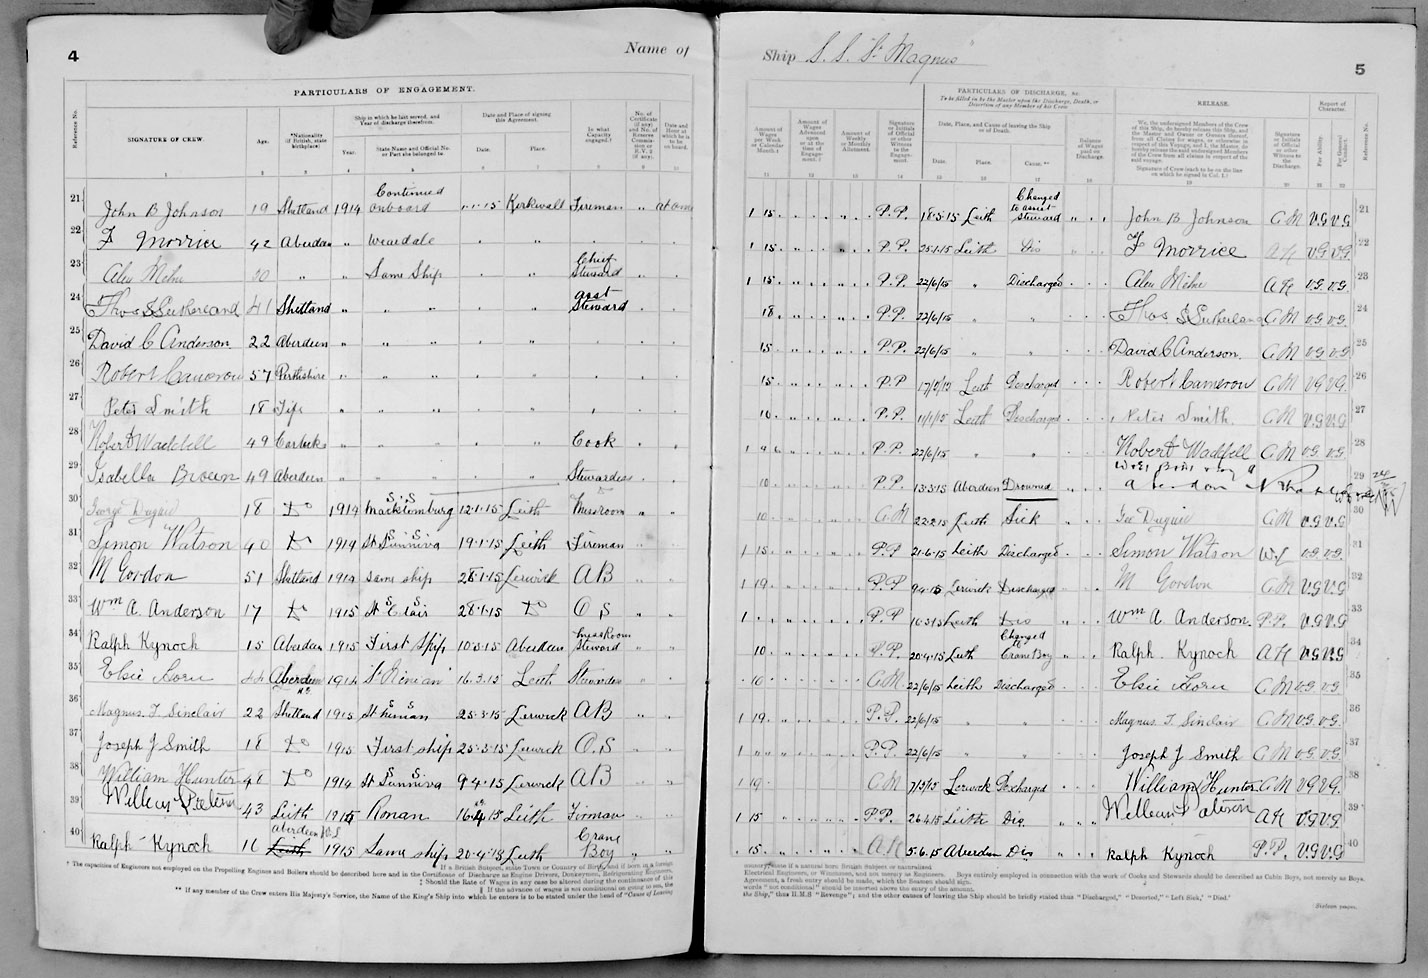 4
Name of
PARTICULARS OF ENGAGEMENT.
Reference No.
SIGNATURE OF CREW.
Age.
*Nationality (if British, state birthplace)
Ship in which he last served, and Year of discharge therefrom.
Year.
State Name and Official No. or Port she belonged to.
Date and Place of signing this Agreement.
Date.
Place.
In what Capacity engaged.†
No. of Certificate (if any)
Date and Hour at which he is to be on board.
21 John B Johnson 19 Shetland 1914 Continued onboard 1.1.15 Kirkwall Fireman at once
22 F Morrice 42 Aberdeen " Weardale " " " "
23 Alex Milne 20 " " Same Ship " " Chief Steward
24 Thos S Sutherland 41 Shetland " " " " " " asst Steward
25 David C Anderson 22 Aberdeen " " " " "
26 Robert Cameron 57 Perthshire " " " " "
27 Peter Smith 18 Fife " " " " "
28 Robert Waddell 49 " " " " " Cook
29 Isabella Brown 49 Aberdeen " " " " " Stewardess
30 George Duguid 18 Do 1914 S.S Macklemburg 12.1.15 Leith Messroom " "
31 Simon Watson 40 Do 1914 S S St Sunniva 19.1.15 Leith Fireman
32 M Gordon 51 Shetland 1914 same ship 28.1.15 Lerwick AB
33 Wm A. Anderson 17 Do 1915 S S St Clair 28.1.15 Do O S
34 Ralph Kynoch 15 Aberdeen 1915 First Ship 10.3.15 Aberdeen MessRoom Steward
35 Elsie 44 Aberdeen 1914 St Ninian 16.3.15 Leith Stewardess
36 Magnus. T. Sinclair 22 Shetland 1915 S S St Ninian 25.3.15 Lerwick AB
37 Joseph J Smith 18 Do 1915 First ship 25.3.15 Lerwick O.S
38 William Hunter Do 1914 S S St Sunniva 9.4.15 Lerwick AB
39 William Paterson 43 Leith 1915 Ronan 16.4.15 Leith Firman
40 Ralph Kynoch 16 Aberdeen 1915 Same ship Leith Crane Boy
† The capacities of Engineers not employed on the Propelling Engines and Boilers should be described here and in the Certificate of Discharge as Engine Drivers, Donkeymen, Refrigerating Engineers,
‡ Should the Rate of Wages in any case be altered during the continuance of this
** If any member of the Crew enters His Majesty's Service, the Name of the King's Ship into which he enters is to be stated under the head of "Cause of Leaving
Ship S. S. "St Magnus"
5
PARTICULARS OF DISCHARGE, &c.
To be filled in by the Master upon the Discharge, Death, or Desertion of any Member of his Crew
RELEASE.
Report of Character.
Amount of Wages per Week or Calendar Month.‡
Amount of Wages Advanced upon or at the time of Engagement.
Amount of Weekly or Monthly Allotment.
Signature or Initials of Official or Witness to the Engagement.
Date, Place, and Cause of leaving the Ship or of Death.
Date.
Place.
Cause.**
Balance of Wages paid on Discharge.
Signature of Crew (each to be on the line on which he signed in Col. 1.)
Signature or Initials of Official or other Witness to the Discharge.
For Ability.
For General Conduct.
Reference No.
1 15 P.P. 18.5.15 Leith Changed to assist Steward John B Johnson C M V.G V.G 21
1 15 P.P. 25.1.15 Leith Dis F Morrice A K V.G V.G 22
1 15 P.P 22/6/15 " Discharged Alex Milne A K V.G. V.G. 23
18 P.P. 22/6/15 " " Thos S Sutherland C M V.G V.G. 24
15 P.P. 22/6/15 " " David C Anderson. C M V.G V.G. 25
15 P.P Leith Discharged Robert Cameron C M V.G V.G. 26
10 P.P. 11/1/15 Leith Discharged Peter Smith. C M V.G V.G 27
P.P. 22/6/15 " " Robert Waddell C M V.G V.G. 28
10 P.P. 13.3.15 Aberdeen Drowned 29
10 C.M 22.2.15 Leith Sick Geo Duguid C M V.G V.G. 30
1 15 P.P 21.6.15 Leith Discharged Simon Watson V.G. V.G. 31
1 19 P.P 9.4.15 Lerwick Discharged M Gordon C M V.G V.G 32
1 P.P Leith Dis Wm A Anderson. P.P. V.G V.G 33
10 P.P. 20.4.15 Leith Changed to Crane Boy Ralph. Kynoch A K V.G V.G 34
10 C M 22/6/15 Leith Discharged Elsie C M V.G V.G. 35
1 19 P.P. 22/6/15 " " Magnus. T. Sinclair C M V.G V.G. 36
1 P.P. 22/6/15 " " Joseph J Smith C M V.G V.G. 37
1 19 C M Lerwick Discharged William Hunter C M V.G V.G. 38
1 15 P.P. 26.4.15 Leith Dis. William Paterson A K V.G V.G 39
15 A K 5.6.15 Aberdeen Dis Ralph Kynoch P.P. V.G V.G 40
Electrical Engineers, or Winchmen, and not merely as Engineers. Boys entirely employed in connection with the work of Cooks and Stewards should be described as Cabin Boys, not merely as Boys.
Agreement, a fresh entry should be made, which the Seaman should sign.
words "not conditional" should be inserted above the entry of the amount.
the Ship," thus H.M.S "Revenge"; and the other causes of leaving the Ship should be briefly stated thus "Discharged," "Deserted," "Left Sick," "Died."
[Sixteen pages.